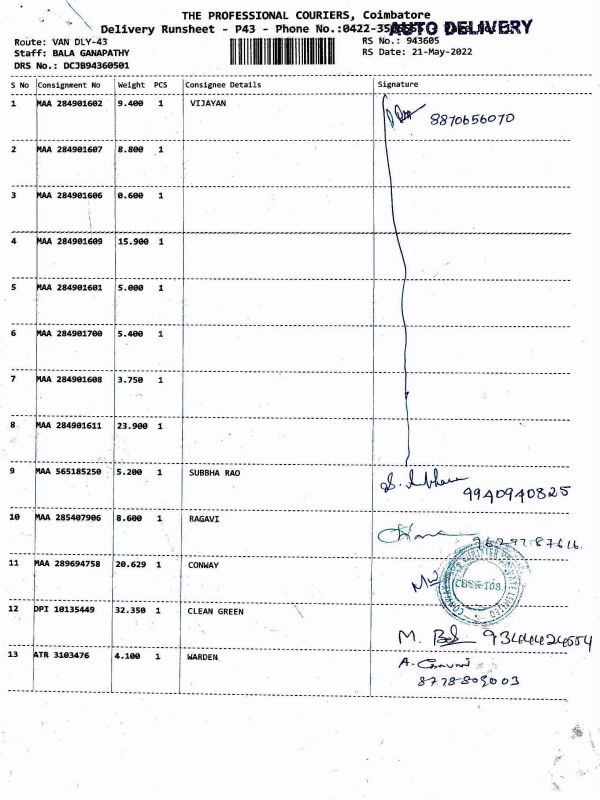 THE PROFESSIONAL COURIERS, Coimbatore
Delivery Runsheet - P43 - Phone No.:0422-35
AUTO DELIVERY
Route: VAN DLY-43
RS No.: 943605
Staff: BALA GANAPATHY
RS Date: 21-May-2022
DRS No.: DCJB94360501
S No Consignment No Weight PCS Consignee Details Signature
1 MAA 284901602 9.400 1 VIJAYAN 8870656070
2 MAA 284901607 8.800 1
3 MAA 284901606 0.600 1
4 MAA 284901609 15.900 1
5 MAA 284901601 5.000 1
6 MAA 284901700 5.400 1
7 MAA 284901608 3.750 1
8 MAA 284901611 23.900 1
9 MAA 565185250 5.200 1 SUBBHA RAO
9940940825
10 MAA 285407906 8.600 1 RAGAVI
11 MAA 289694758 20.629 1 CONWAY
12 DPI 10135449 32.350 1 CLEAN GREEN
M.
13 ATR 3103476 4.100 1 WARDEN A.
8778809003